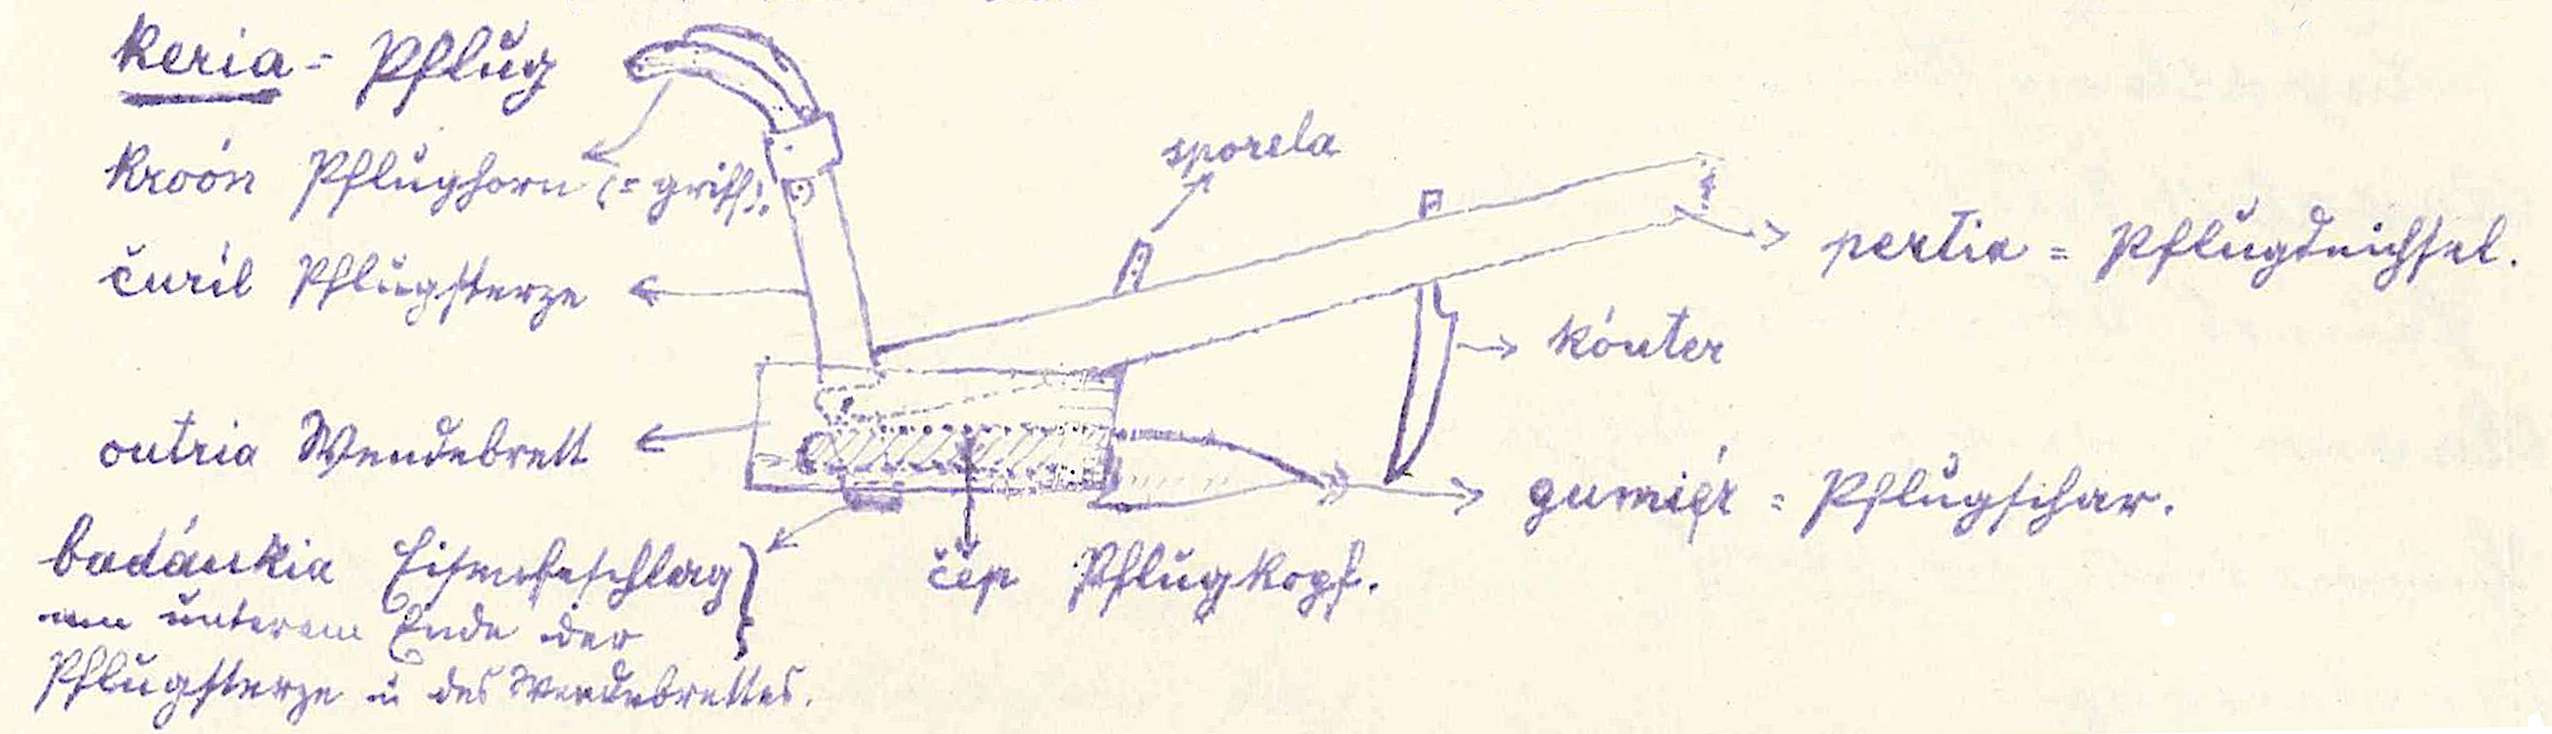 keria = Pflug
kroón Pflughorn (= griff).
čuril Pflugsterze
sporela
pertia = Pflugdeichsel.
kóuter
outria Wendebrett
gumiér = Pflugschar.
čep Pflugkopf.
badánkia Eisenbeschlag
am unterem Ende der
Pflugsterze u des Wendebrettes.